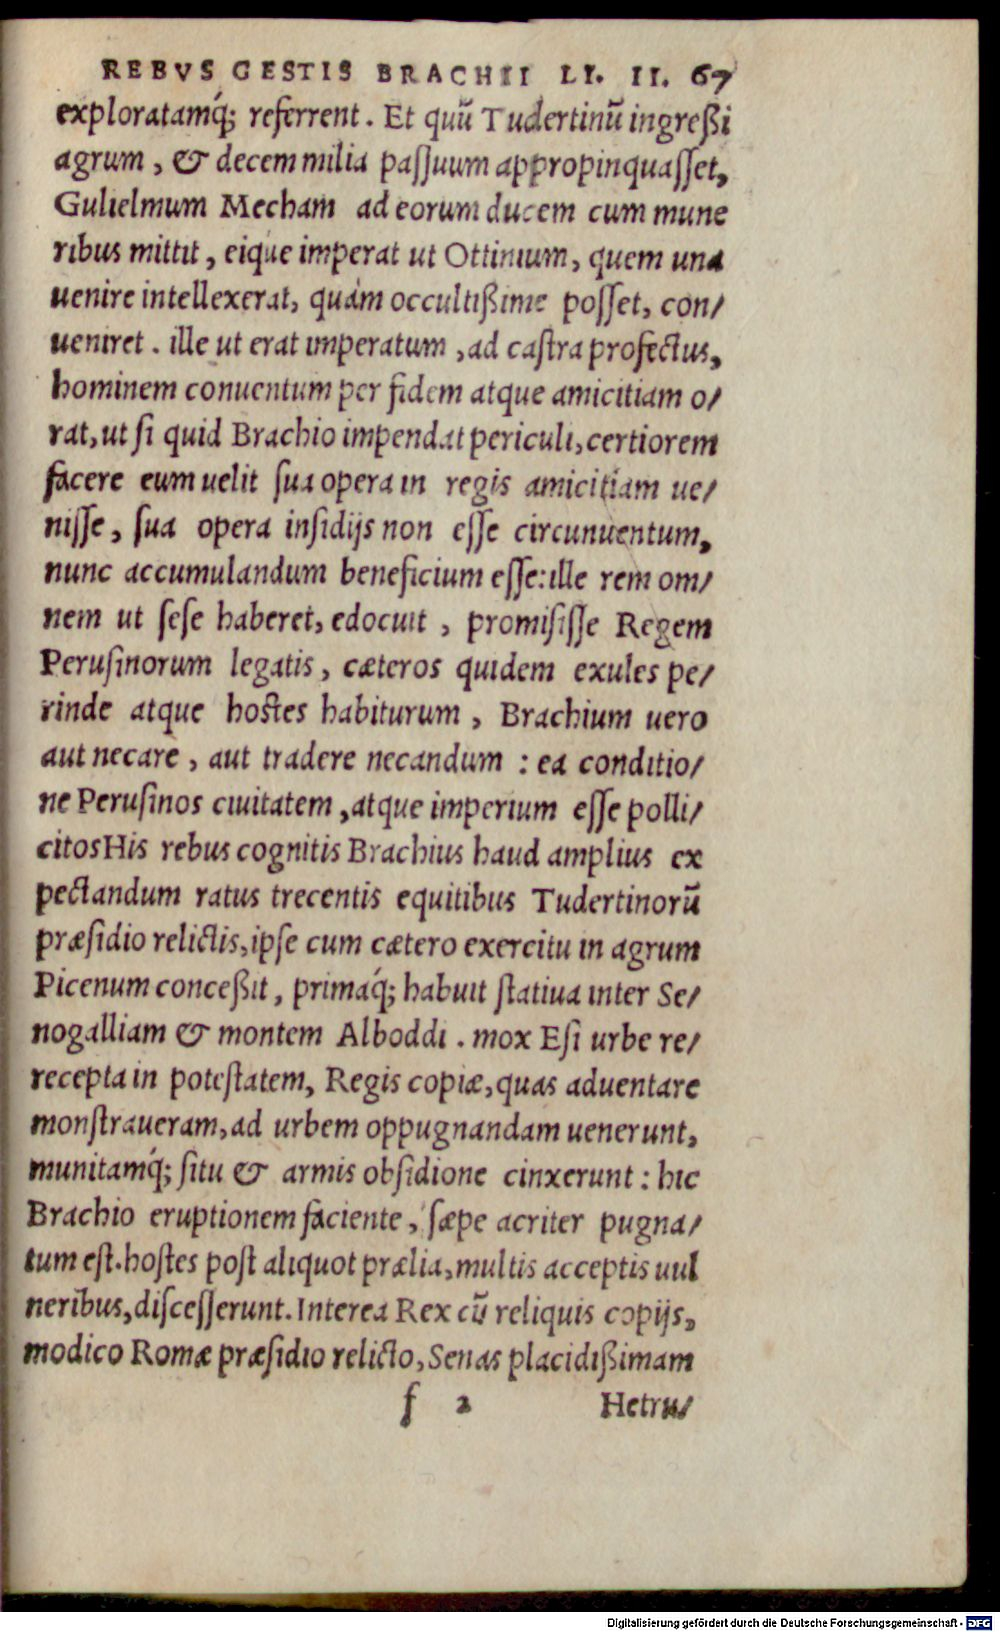 REBVS GESTIS BRACHII LI. II. 67
exploratamq́; referrent. Et quũ Tudertinũ ingreßi
agrum, & decem milia paſſuum appropinquaſſet,
Gulielmum Mecham ad eorum ducem cum mune
ribus mittit, eique imperat ut Ottinium, quem una
uenire intellexerat, quàm occultißime poſſet, con/
ueniret. ille ut erat imperatum, ad caſtra profectus,
hominem conuentum per fidem atque amicitiam o/
rat, ut ſi quid Brachio impendat periculi, certiorem
facere eum uelit ſua opera in regis amicitiam ue/
niſſe, ſua opera inſidijs non eſſe circunuentum,
nunc accumulandum beneficium eſſe: ille rem om/
nem ut ſeſe haberet, edocuit, promiſiſſe Regem
Peruſinorum legatis, cæteros quidem exules pe/
rinde atque hoſtes habiturum, Brachium uero
aut necare, aut tradere necandum: ea conditio/
ne Peruſinos ciuitatem, atque imperium eſſe polli/
citos His rebus cognitis Brachius haud amplius ex
pectandum ratus trecentis equitibus Tudertinorũ
præſidio relictis, ipſe cum cætero exercitu in agrum
Picenum conceßit, primaq́; habuit ſtatiua inter Se/
nogalliam & montem Alboddi. mox Eſi urbe re/
recepta in poteſtatem, Regis copiæ, quas aduentare
monſtraueram, ad urbem oppugnandam uenerunt,
munitamq́; ſitu & armis obſidione cinxerunt: hic
Brachio eruptionem faciente, ſæpe acriter pugna/
tum eſt. hoſtes poſt aliquot prælia, multis acceptis uul
neribus, diſceſſerunt. Interea Rex cũ reliquis copijs,
modico Romæ præſidio relicto, Senas placidißimam
f 2 Hetru/
Digitalisierung gefördert durch die Deutsche Forschungsgemeinschaft - DFG